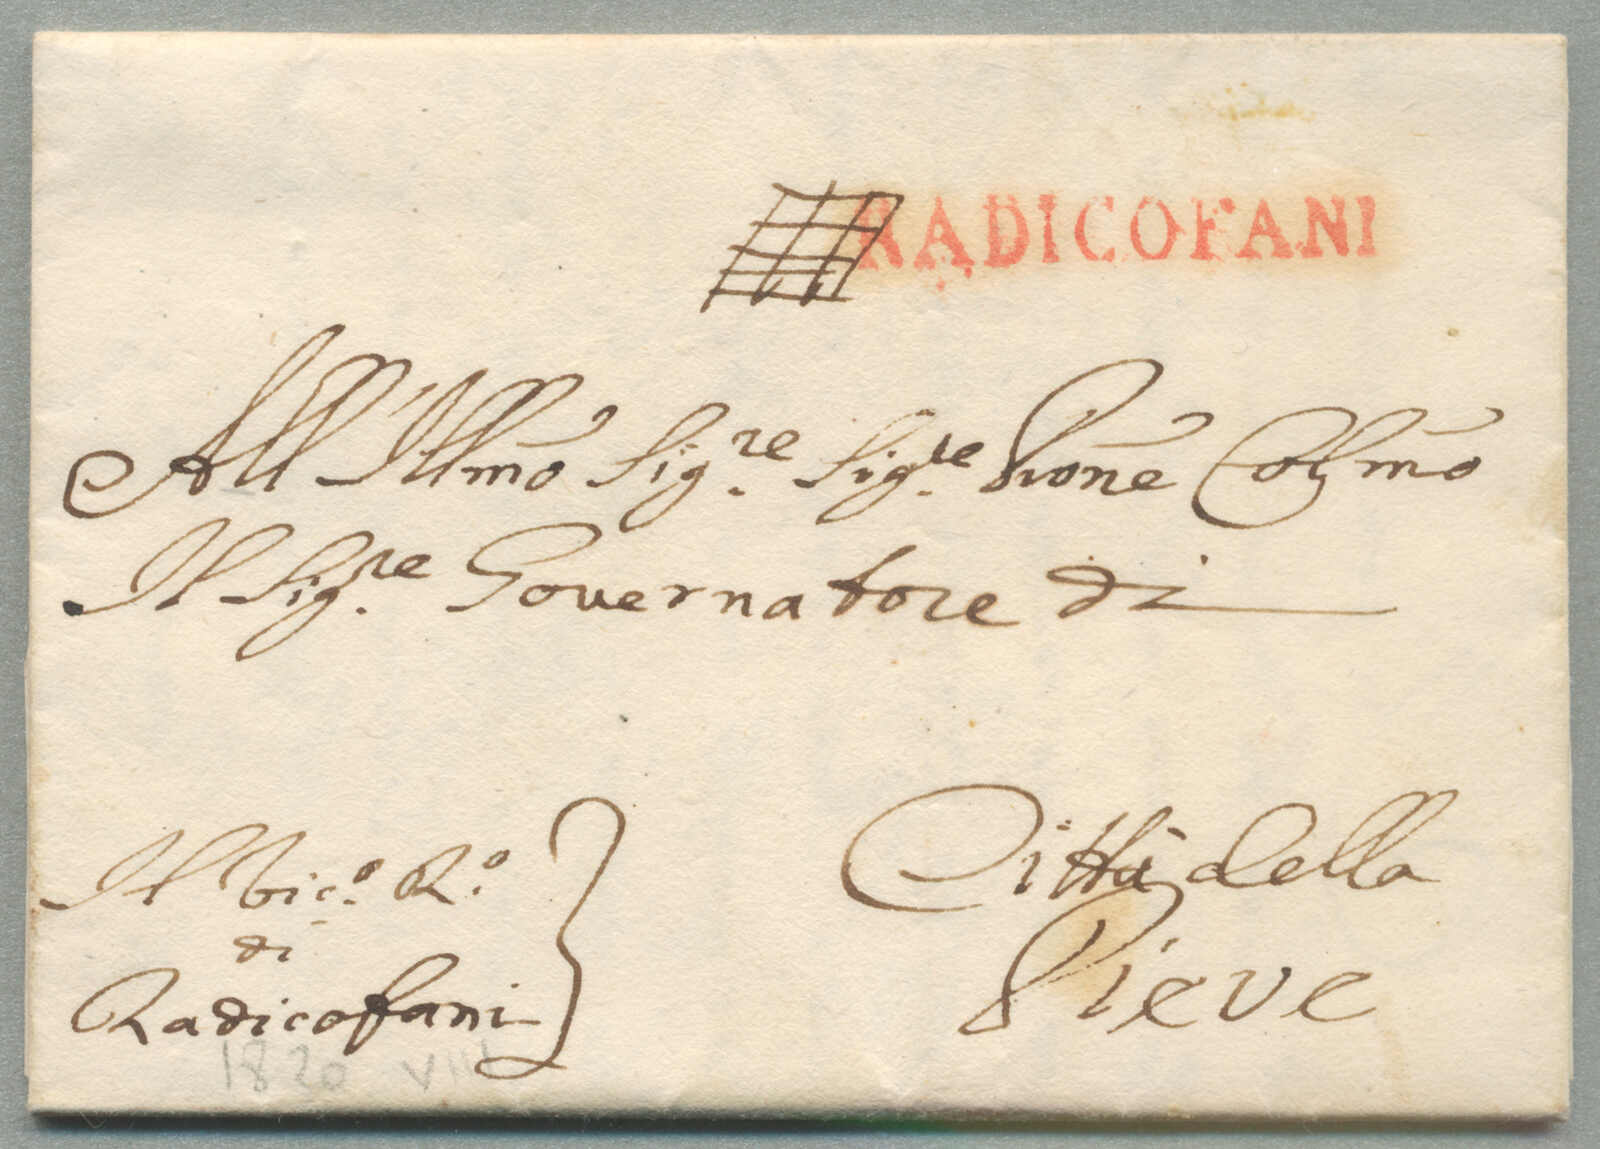 RADICOFANI
All'Illmo Sig.re Sig.re Prone Colmo
Il Sig.re Governatore di
Città della
Pieve
Il Vic.o R.o
di
Radicofani
1820 VIII